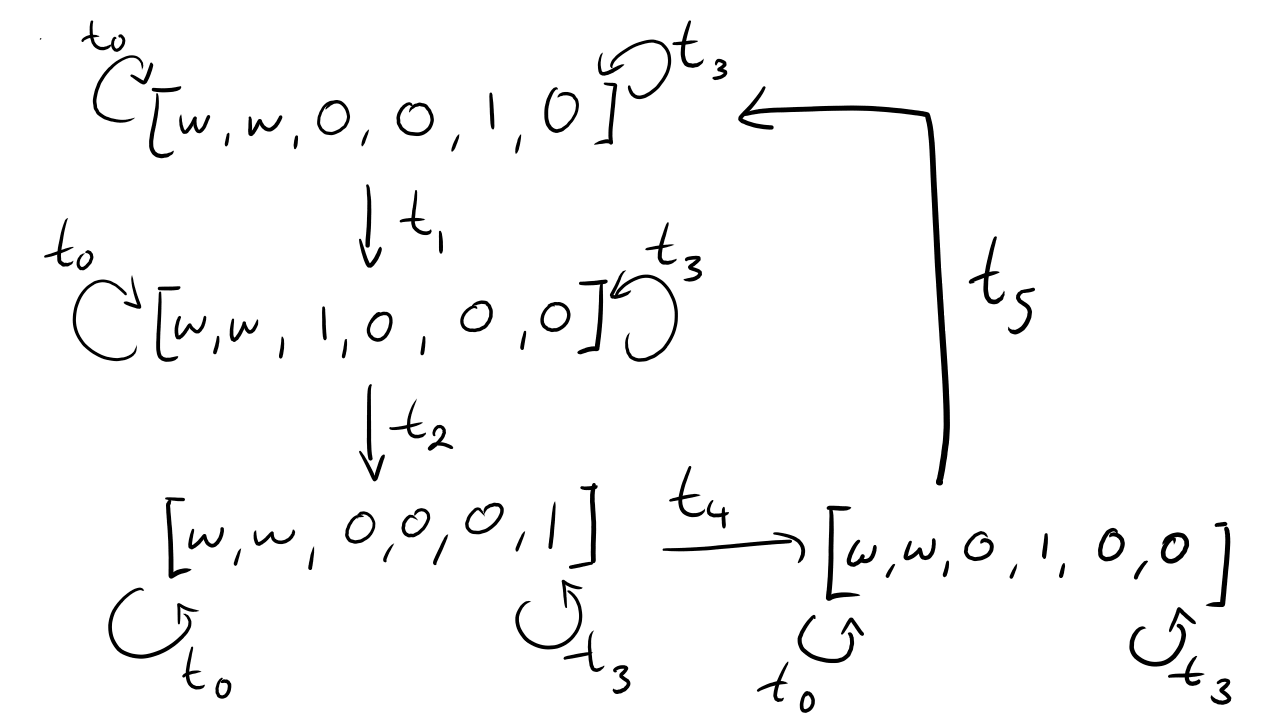 t0 t3
[w, w, 0, 0, 1, 0]
t1
t0 t3
[w, w, 1, 0, 0, 0]
t5
t2
[w, w, 0, 0, 0, 1] t4 [w, w, 0, 1, 0, 0]
t0 t3 t0 t3